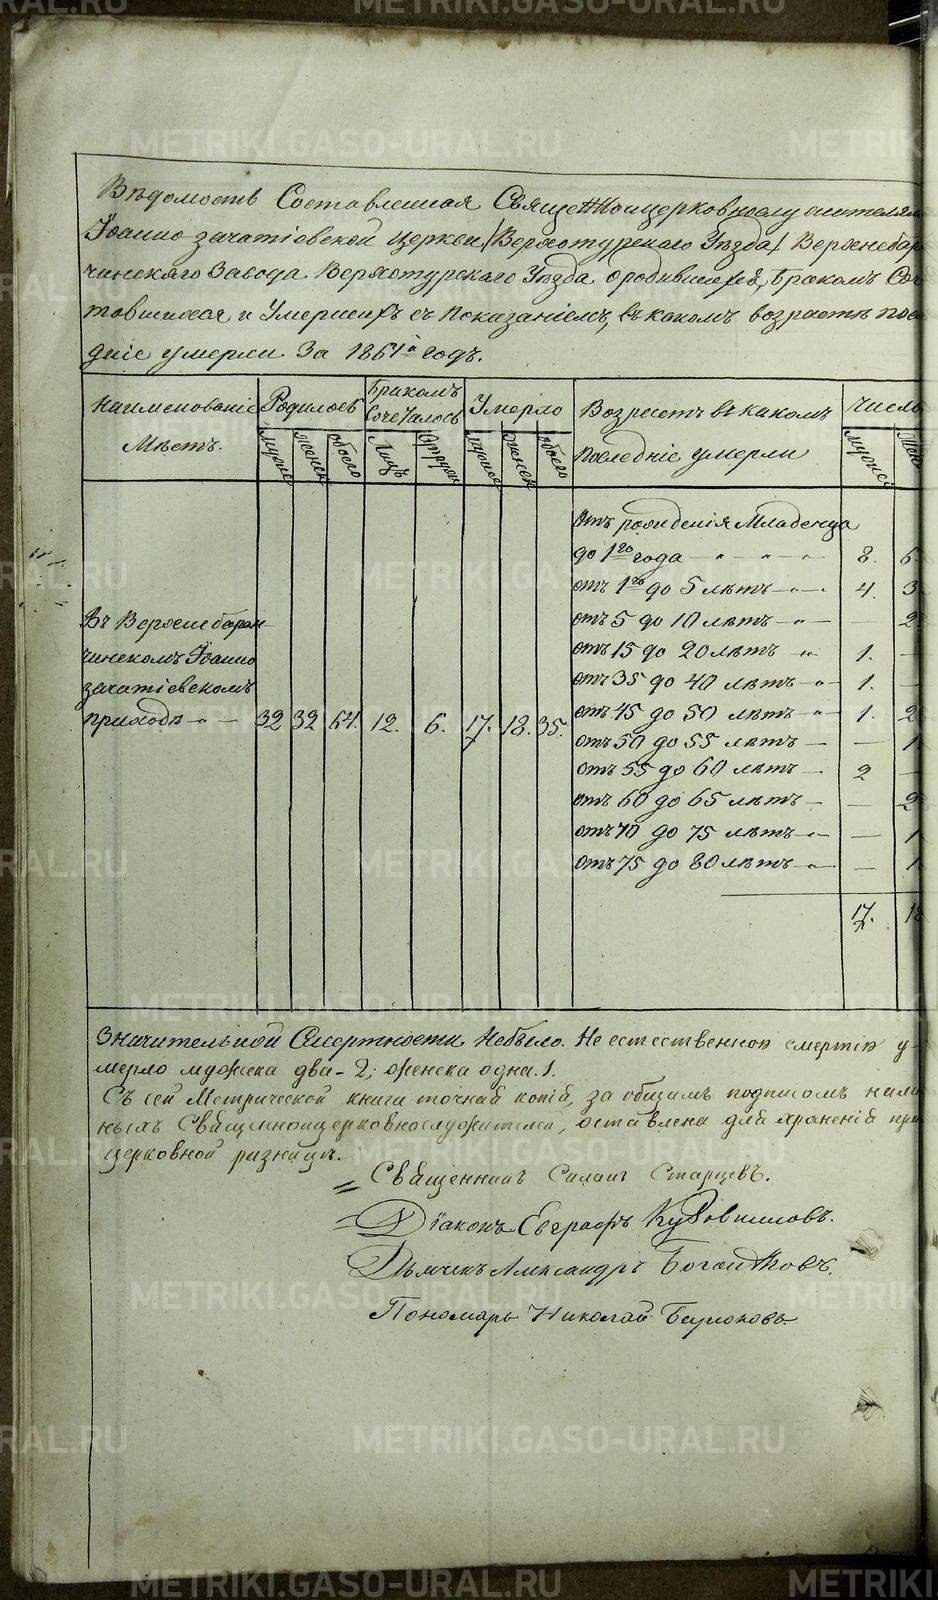 METRIKI.GASO-URAL.RU
Вѣдомость Составленная Священноцерковнослужителями
Іоанно зачатіевской церкви /Верхотурскаго Уѣзда/ Верхнебаран
чинскяго Завода Верхотурскаго Уѣзда о родившихся, бракомъ Соче
товшихся и Умершихъ съ показаніемъ, въ какомъ возрастѣ послѣ
дніе умерли За 1861й годъ.
Наименованіе Мѣстъ. Родилось Бракомъ Сочеталось Умерло Возрастъ въ какомъ последніе умерли Число
мужес женск обоего Лицъ Супруж мужес женск обоего мужес
Отъ рожденія Младенца
до 1го года — " — " — 8. 6.
отъ 1го до 5 лѣтъ — " — 4. 3
отъ 5 до 10 лѣтъ — " — — 2
отъ 15 до 20 лѣтъ " 1. —
отъ 35 до 40 лѣтъ — " 1. —
отъ 45 до 50 лѣтъ — " 1. 2
отъ 50 до 55 лѣтъ — — 1
отъ 55 до 60 лѣтъ — 2 —
отъ 60 до 65 лѣтъ — — 2
отъ 70 до 75 лѣтъ — " — 1
отъ 75 до 80 лѣтъ — " — 1
17. 18
Въ Верхнебаран
чинскомъ Іоанно
зачатіевскомъ
приходѣ — " — 32 32 64. 12. 6. 17. 18. 35.
Значительной Смертности Небыло. Не естественной смертію у-
мерло мужеска два - 2; женска одна. 1.
Съ сей Метрической книги точная копія, за общимъ подписомъ налич
ныхъ Священноцерковнослужителей, оставлена для храненія при
церковной ризницѣ.
Священникъ Симонъ Старцевъ.
Діаконъ Евграфъ Кудовшиновъ.
Дьячекъ Александръ Богомтковъ.
Пономарь Николай Бирюковъ.